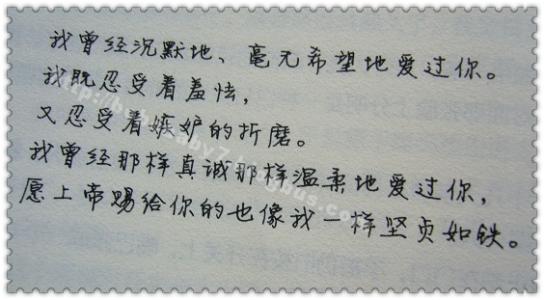 我曾经沉默地、毫无希望地爱过你。
我既忍受着羞怯,
又忍受着嫉妒的折磨。
我曾经那样真诚那样温柔地爱过你,
愿上帝赐给你的也像我一样坚贞如铁。